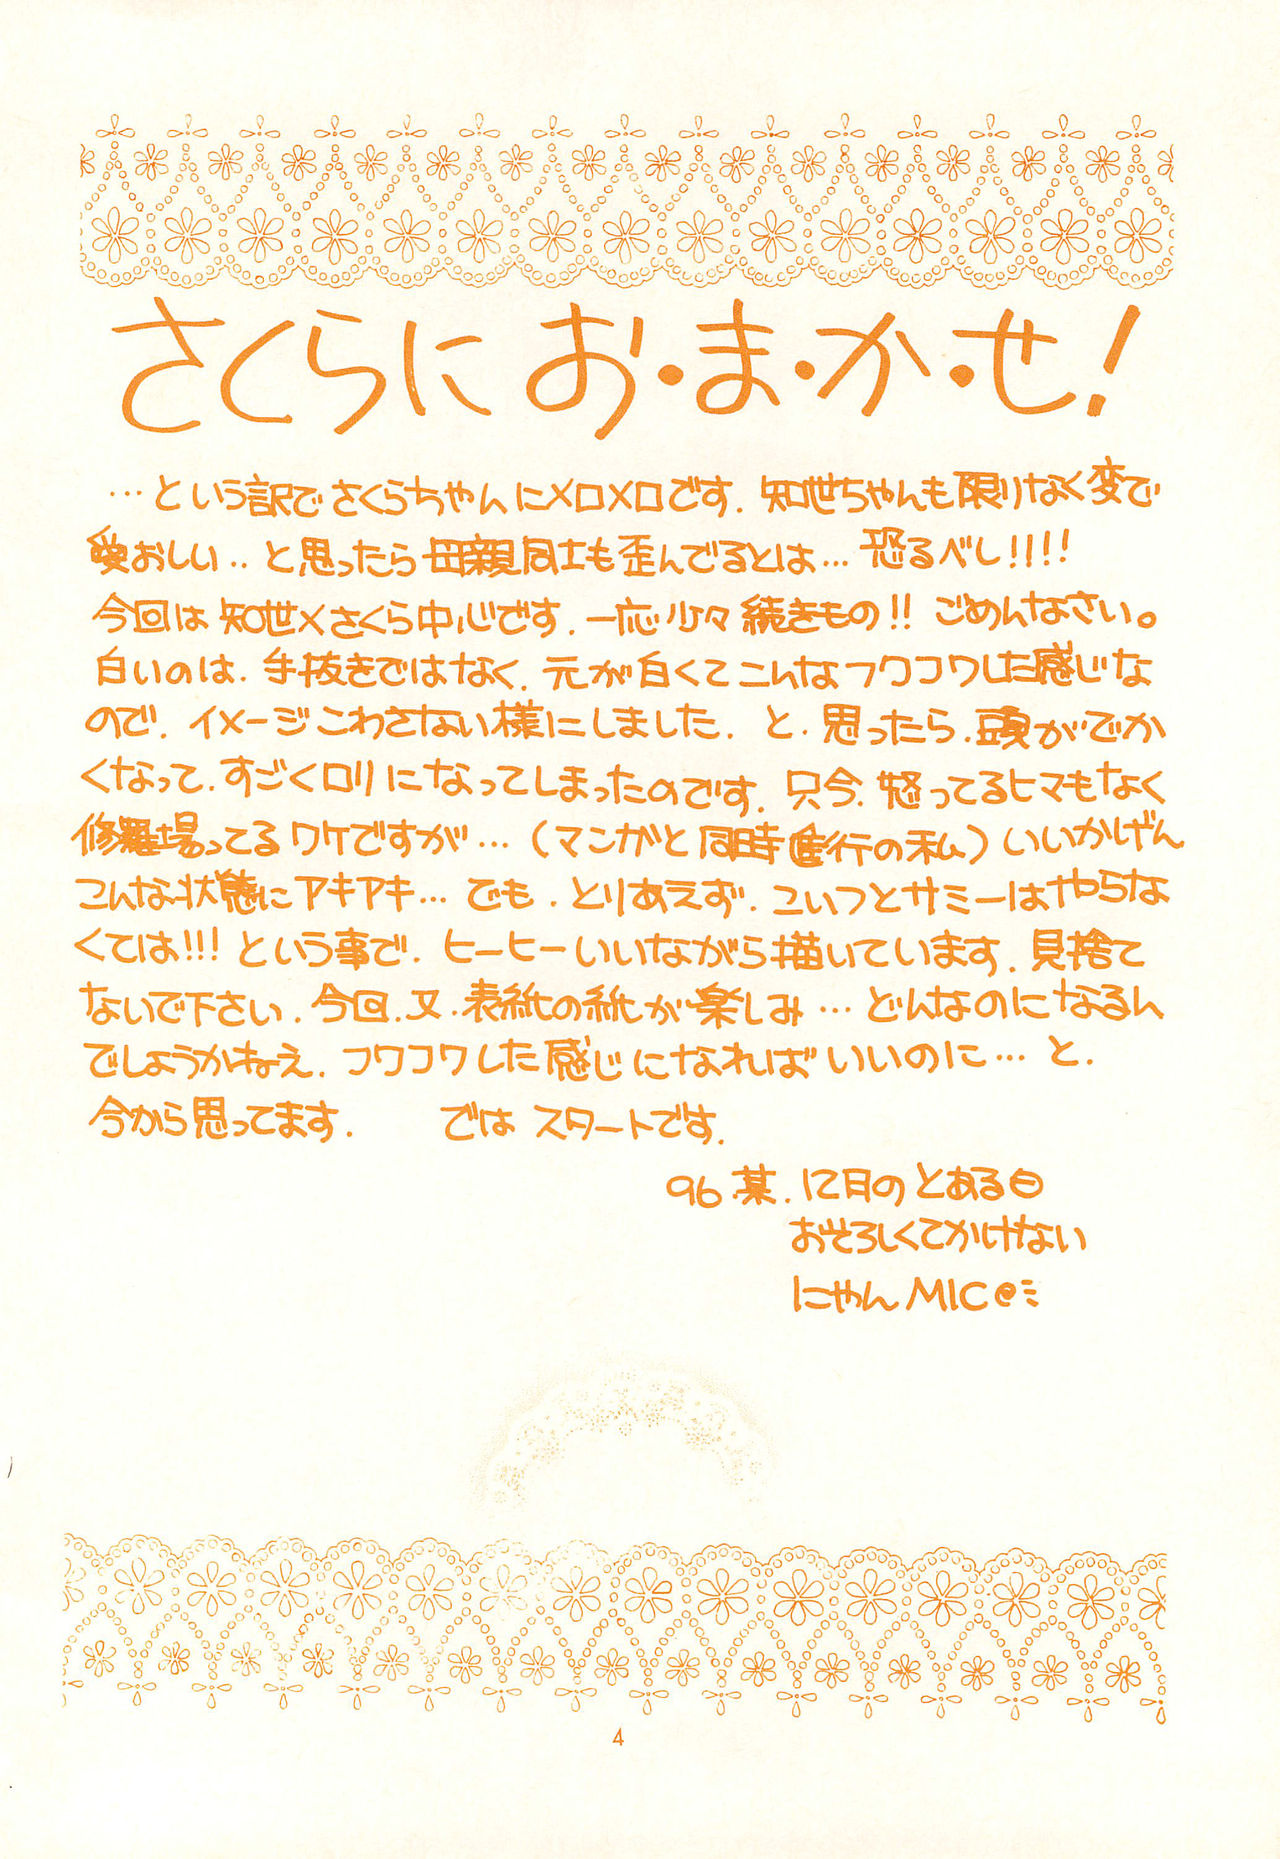 さくらに お・ま・か・せ!
…という訳でさくらちゃんにメロメロです. 知世ちゃんも限りなく変で
愛おしい‥と思ったら母親同士も歪んでるとは… 恐るべし!!!!
今回は知世×さくら中心です. 一応少々続きもの!! ごめんなさい。
白いのは. 手抜きではなく. 元が白くてこんなフワコワした感じな
ので. イメージこわさない様にしました. と. 思ったら. 頭がでか
くなって. すごくロリになってしまったのです. 只今. 怒ってるヒマもなく
修羅場ってるワケですが…(マンガと同時進行の私)いいかげん
こんな状態にアキアキ… でも. とりあえず. こいつとサミーはやらな
くては!!! という事で. ヒーヒーいいながら描いています. 見捨て
ないで下さい. 今回. 又. 表紙の紙が楽しみ… どんなのになるん
でしょうかねえ. フワコワした感じになればいいのに… と.
今から思ってます. では スタートです.
96 某. 12月のとある日
おそろしくてかけない
にゃんMIC
4